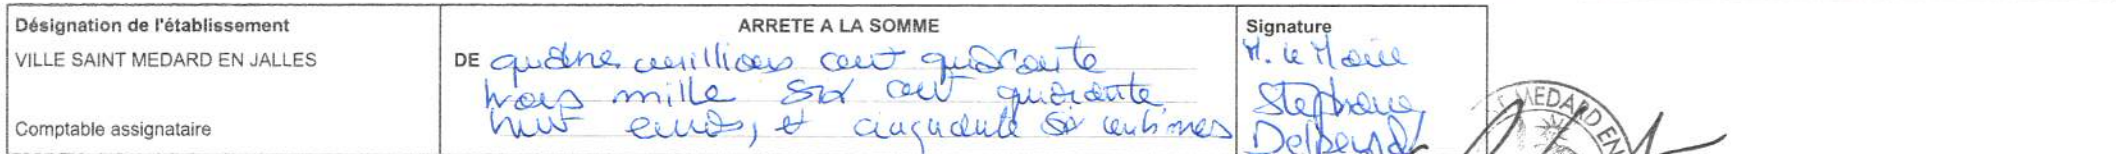 Désignation de l'établissement
VILLE SAINT MEDARD EN JALLES
Comptable assignataire
ARRETE A LA SOMME
DE quatre millions cent quarante
trois mille six cent quarante
huit euros, et cinquante six centimes
Signature
M. le Maire
Stéphane
Delpeyrat
MEDARD EN